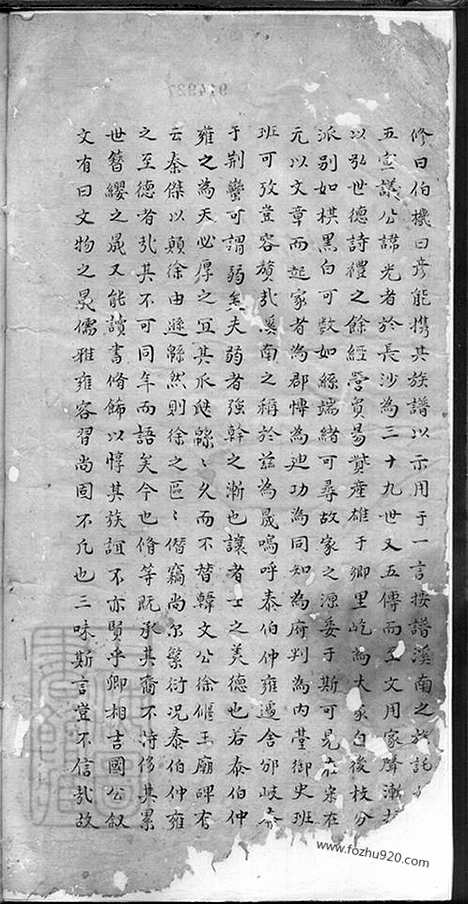 修曰伯機曰彥能携其族譜以示用于一言按譜溪南之族託
五宣議公諱光者於長沙為三十九世又五傳而至文用家聲漸
以弘世德詩禮之餘經營貿易貲產雄于鄉里屹為大家自後枝分
派別如棋黑白可數如絲端緒可尋故家之源委于斯可見宋在
元以文章而起家者為郡博為廸功為同知為府判為內臺御史班
班可攷豈容贅哉溪南之稱於茲為晟嗚呼泰伯仲雍遜舍邠岐奔
于荆蠻可謂弱矣夫弱者強幹之漸也讓者士之美德也若泰伯仲
雍之為天必厚之宜其瓜瓞緜〻久而不替韓文公徐偃王廟碑有
云秦傑以顛徐由遜緜然則徐之區〻僭竊尚尔繁衍况泰伯仲雍
之至德者哉其不可同年而語矣今也脩等既承其裔不特侈其累
世簪纓之晟又能讀書脩飾以惇其族誼不亦賢乎卿相吉國公叙
文有曰文物之晟儒雅雍容習尚固不凡也三味斯言豈不信哉故
914927
www.fozhu920.com